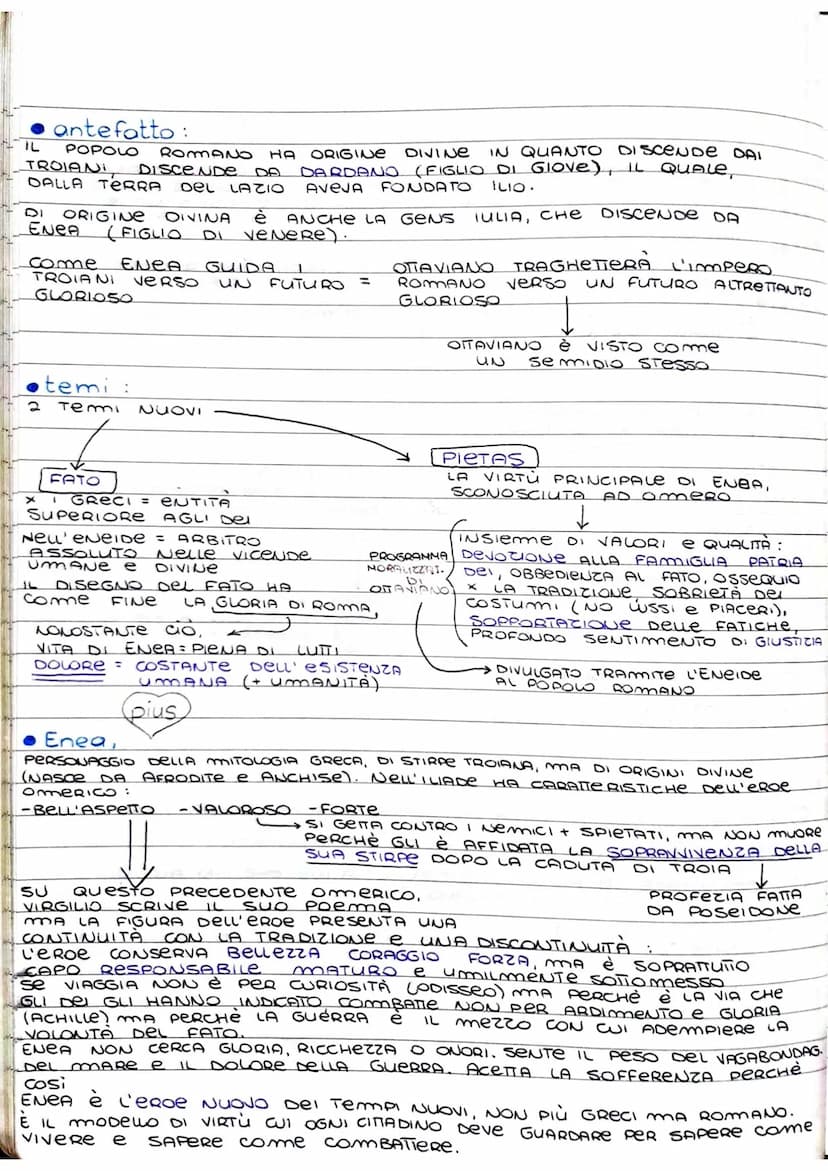 • antefatto :
IL POPOLO ROMANO HA ORIGINE DIVINE IN QUANTO DISCENDE DAI
TROIANI, DISCENDE DA DARDANO (FIGLIO DI GIOVE), IL QUALE,
DALLA TERRA DEL LAZIO AVEVA FONDATO ILIO.
DI ORIGINE DIVINA È ANCHE LA GENS IULIA, CHE DISCENDE DA
ENEA (FIGLIO DI VENERE).
COME ENEA GUIDA I
TROIANI VERSO UN FUTURO =
GLORIOSO
OTTAVIANO TRAGHETTERÀ L'IMPERO
ROMANO VERSO UN FUTURO ALTRETTANTO
GLORIOSO
OTTAVIANO È VISTO COME
UN SEMIDIO STESSO
• temi :
2 TEMI NUOVI
FATO
× I GRECI = ENTITÀ
SUPERIORE AGLI DEI
NELL'ENEIDE = ARBITRO
ASSOLUTO NELLE VICENDE
UMANE E DIVINE
IL DISEGNO DEL FATO HA
COME FINE LA GLORIA DI ROMA,
NONOSTANTE CIÒ,
VITA DI ENEA = PIENA DI LUTTI
DOLORE = COSTANTE DELL'ESISTENZA
UMANA (+ UMANITÀ)
PIETAS
LA VIRTÙ PRINCIPALE DI ENEA,
SCONOSCIUTA AD OMERO
PROGRAMMA
MORALIZZAT.
DI
OTTAVIANO
INSIEME DI VALORI E QUALITÀ :
DEVOZIONE ALLA FAMIGLIA PATRIA
DEI, OBBEDIENZA AL FATO, OSSEQUIO
× LA TRADIZIONE, SOBRIETÀ DEI
COSTUMI (NO LUSSI E PIACERI),
SOPPORTAZIONE DELLE FATICHE,
PROFONDO SENTIMENTO DI GIUSTIZIA
DIVULGATO TRAMITE L'ENEIDE
AL POPOLO ROMANO
pius
• Enea,
PERSONAGGIO DELLA MITOLOGIA GRECA, DI STIRPE TROIANA, MA DI ORIGINI DIVINE
(NASCE DA AFRODITE E ANCHISE). NELL'ILIADE HA CARATTERISTICHE DELL'EROE
OMERICO :
-BELL'ASPETTO -VALOROSO -FORTE
SI GETTA CONTRO I NEMICI + SPIETATI, MA NON MUORE
PERCHÈ GLI È AFFIDATA LA SOPRAVVIVENZA DELLA
SUA STIRPE DOPO LA CADUTA DI TROIA
PROFEZIA FATTA
DA POSEIDONE
SU QUESTO PRECEDENTE OMERICO,
VIRGILIO SCRIVE IL SUO POEMA
MA LA FIGURA DELL'EROE PRESENTA UNA
CONTINUITÀ CON LA TRADIZIONE E UNA DISCONTINUITÀ :
L'EROE CONSERVA BELLEZZA CORAGGIO FORZA, MA È SOPRATTUTTO
CAPO RESPONSABILE MATURO E UMILMENTE SOTTOMESSO
SE VIAGGIA NON È PER CURIOSITÀ (ODISSEO) MA PERCHÈ È LA VIA CHE
GLI DEI GLI HANNO INDICATO COMBATTE NON PER ARDIMENTO E GLORIA
(ACHILLE) MA PERCHÈ LA GUERRA È IL MEZZO CON CUI ADEMPIERE LA
VOLONTÀ DEL FATO.
ENEA NON CERCA GLORIA, RICCHEZZA O ONORI. SENTE IL PESO DEL VAGABONDAG.
DEL MARE E IL DOLORE DELLA GUERRA. ACETTA LA SOFFERENZA PERCHÈ
COSÌ
ENEA È L'EROE NUOVO DEI TEMPI NUOVI, NON PIÙ GRECI MA ROMANO.
È IL MODELLO DI VIRTÙ CUI OGNI CITTADINO DEVE GUARDARE PER SAPERE COME
VIVERE E SAPERE COME COMBATTERE.